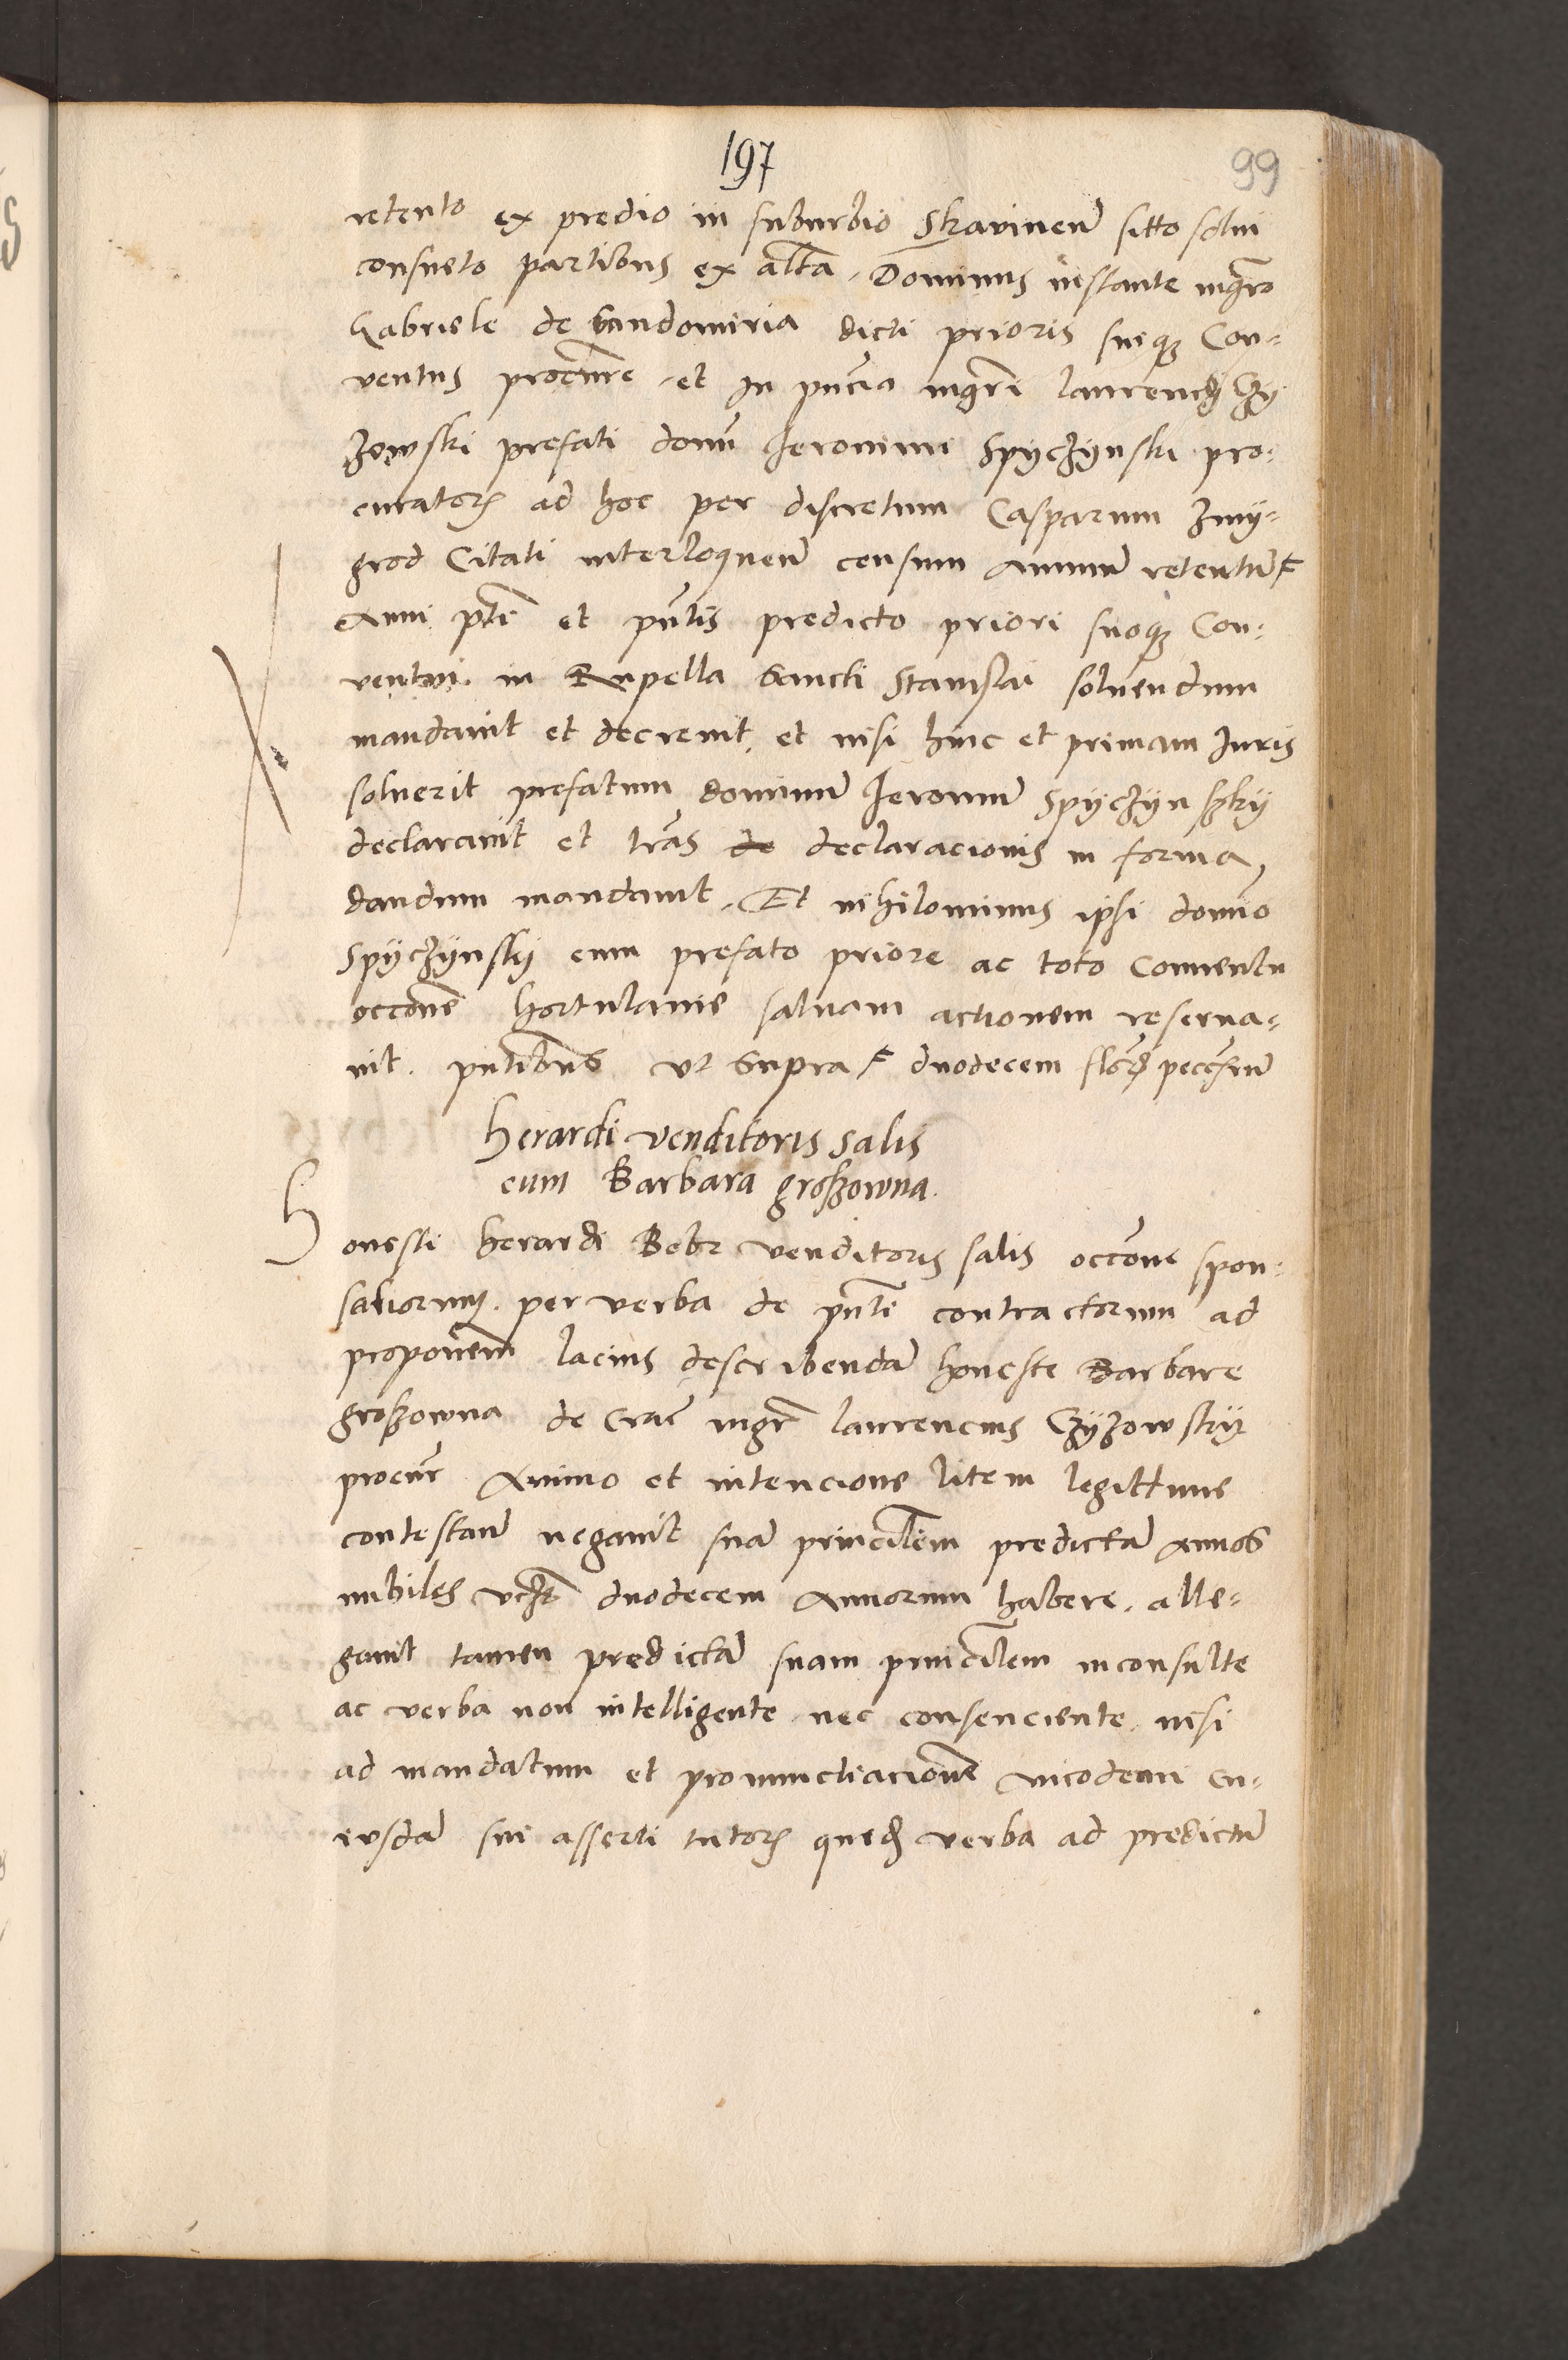 197
99
retento ex predio in suburbio Skavinen sitto solui
consueto partibus ex altra. Dominus instante mgro
Gabriele de Sandomiria dicti prioris suiqz Con-
ventus procure et in pncia mgri laurencij Czy
zowski prefati domi Jeronimi Spyczynski pro-
curatoris ad hoc per discretum Casparum zmy-
grod Citati interloquen censum annum retentu
anni pti et pntis predicto priori suoqz Con-
ventui in Rupella Sancti Stanislai soluendum
mandavit et decrevit et nisi hinc et primam Juris
soluerit prefatum dominum Jeronimu Spyczynsky
declaravit et tras de declaracionis in forma
dandum mandavit. Et nihilominus ipsi domino
Spyczynsky cum prefato priore ac toto conventu
occone hortulanie saluam actionem reserua-
uit. pntibus ut supra duodecem
herardi venditoris salis
cum Barbara groszowna.
Honesti herardi Bobr venditoris salis occone spon-
saliorum per verba de pnti contractorum ad
proponem lacius describendam honeste Barbare
groszowna de Crac mgr laurencius Czyzowsky
procur animo et intencione litem legittime
contestan negavit sua princilem predicta annos
nubiles vclt duodecem annorum habere. alle-
gavit tamen predicta suam princilem inconsulte
ac verba non intelligente nec consenciente nisi
ad mandatum et pronunctiacione nicodemi cu-
iusda sui asserti tutoris qued verba ad predictu